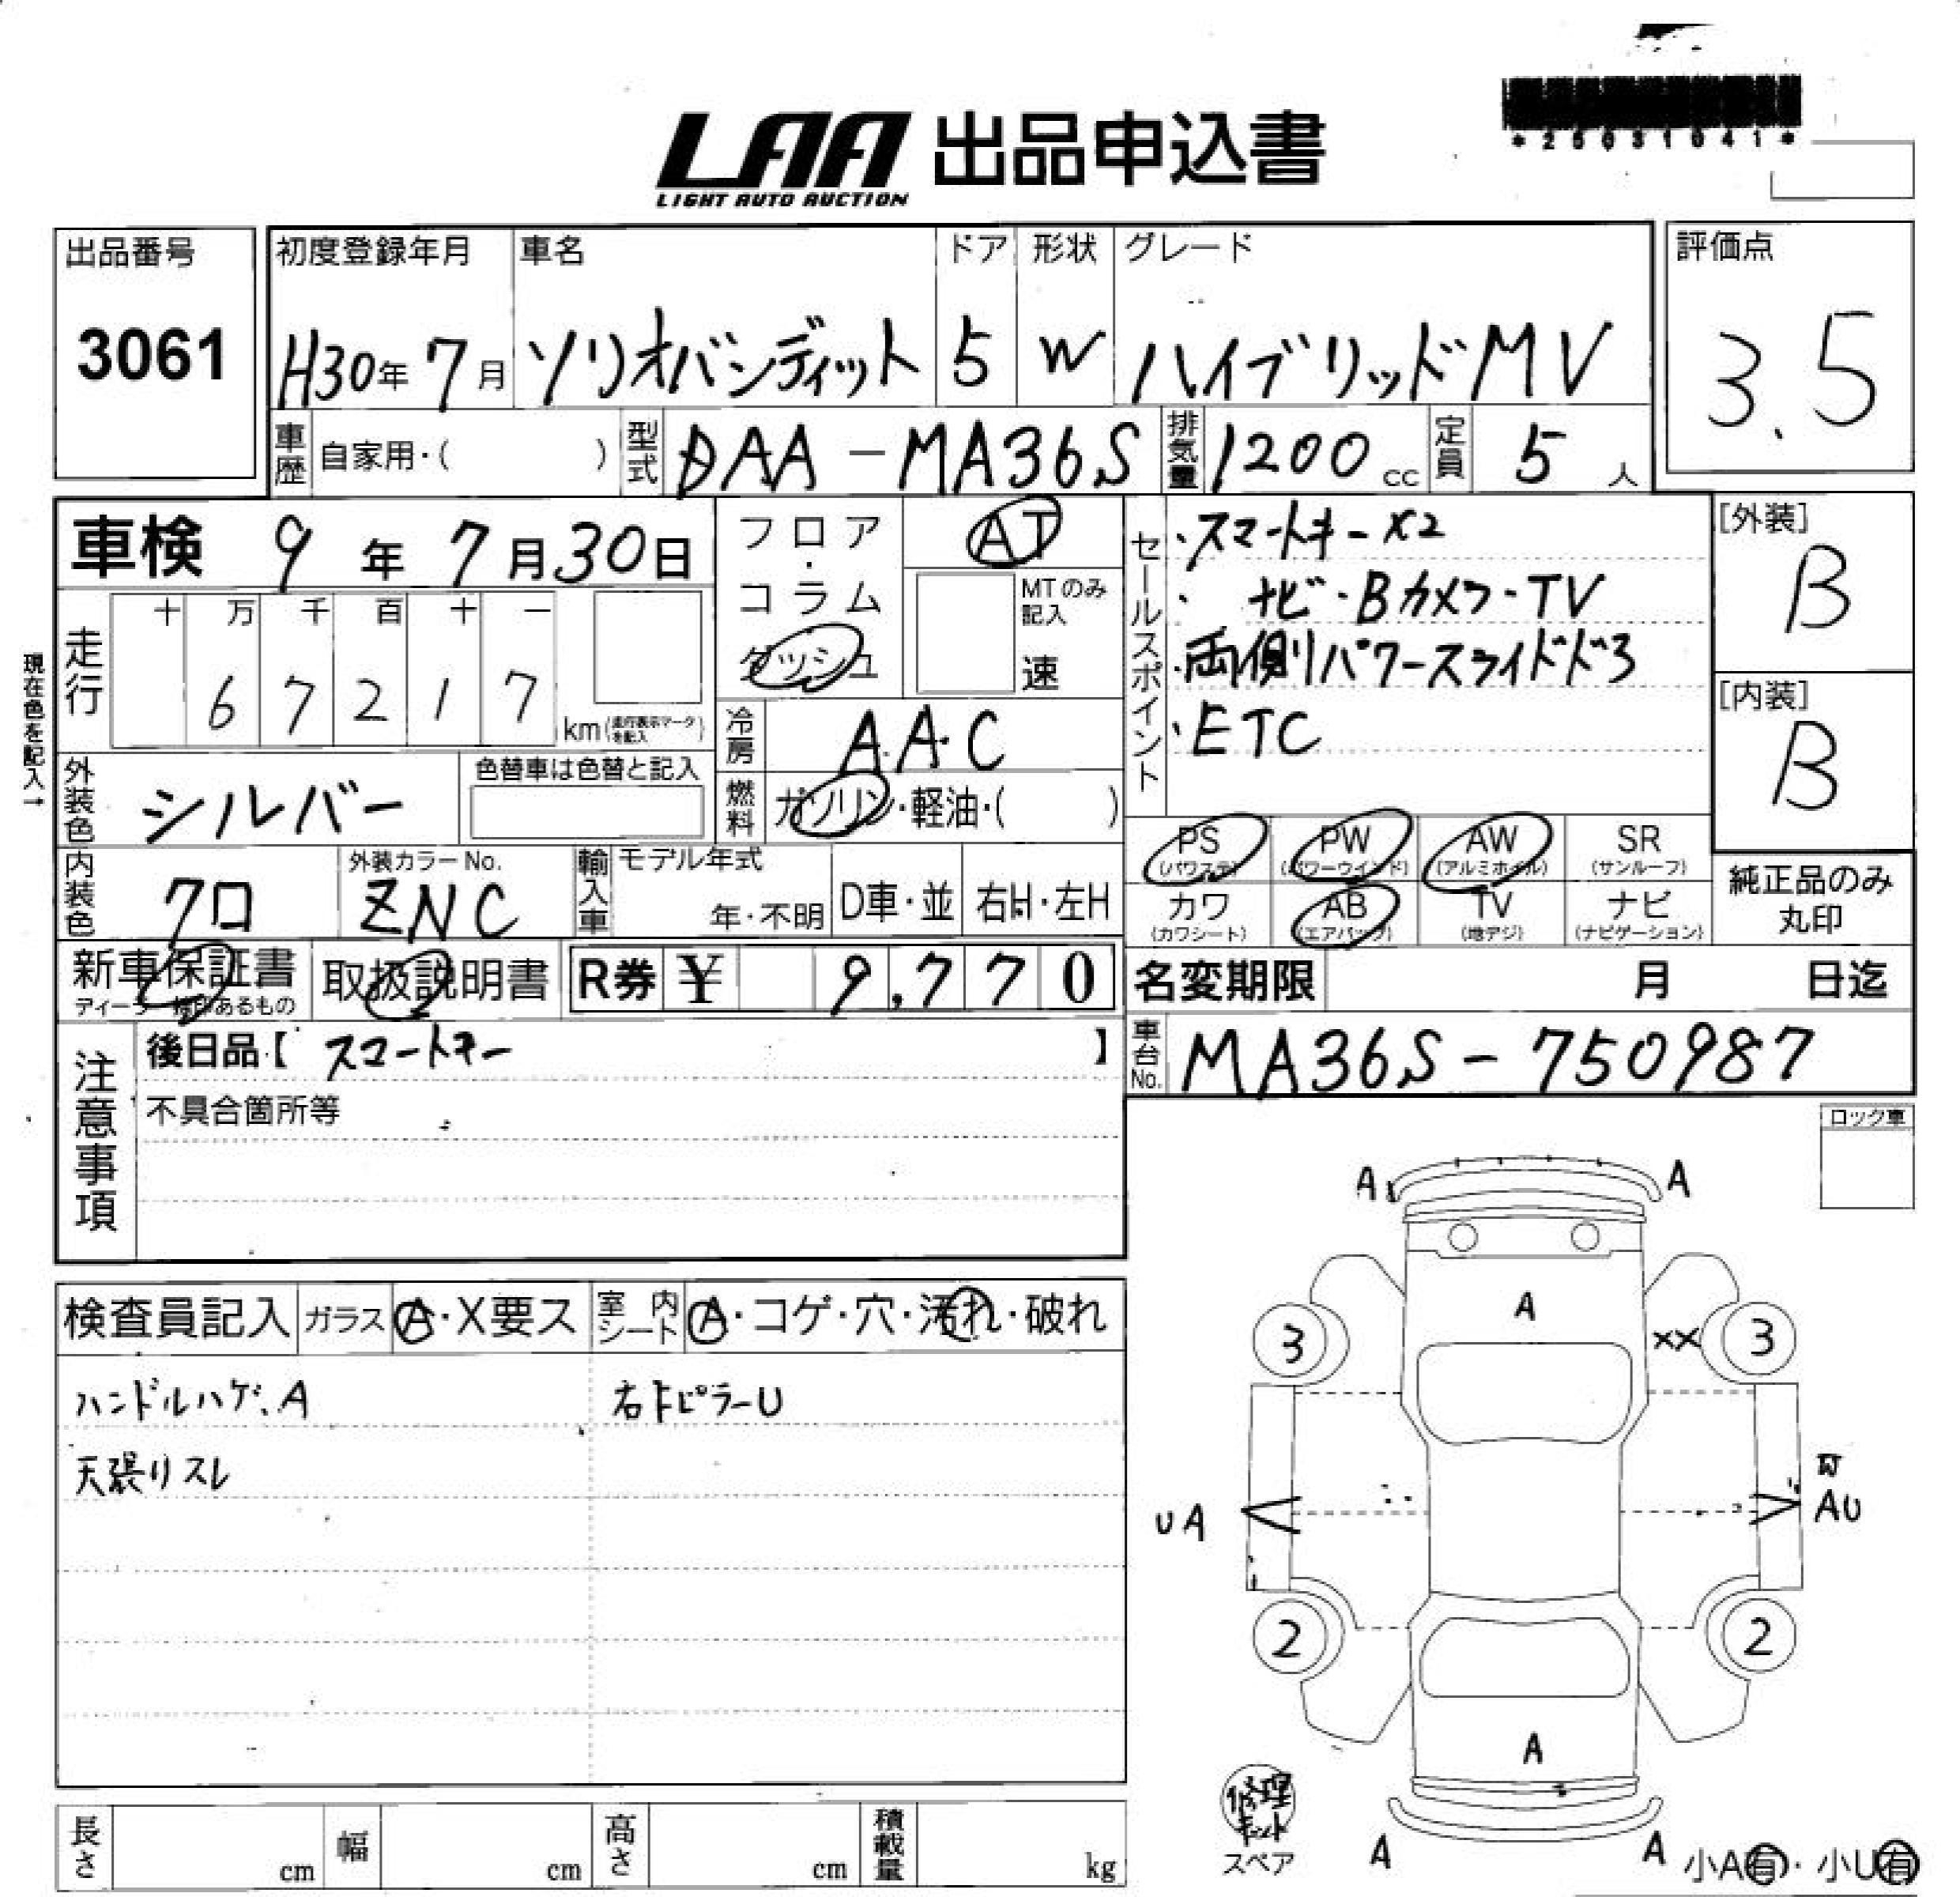 *25031041*
LAA 出品申込書
LIGHT AUTO AUCTION
出品番号
3061
初度登録年月 車名 ドア 形状 グレード
H30年 7月 ソリオバンディット 5 W ハイブリッドMV
評価点
3.5
車歴 自家用・( ) 型式 DAA-MA36S 排気量 1200 cc 定員 5 人
車検 9年 7月30日
フロア・コラム
ダッシュ
AT
MTのみ記入
速
現在色を記入→
走行 十 万 千 百 十 一
6 7 2 1 7 km(走行表示マークを記入)
冷房 AAC
燃料 ガソリン・軽油・( )
外装色 シルバー 色替車は色替と記入
内装色 クロ 外装カラーNo. ZNC
輸入車 モデル年式 年・不明 D車・並 右H・左H
セールスポイント
・スマートキーX2
・ナビ・Bカメラ・TV
・両側パワースライドドア
・ETC
[外装]
B
[内装]
B
PS (パワステ) PW (パワーウインド) AW (アルミホイル) SR (サンルーフ)
カワ (カワシート) AB (エアバッグ) TV (地デジ) ナビ (ナビゲーション)
純正品のみ
丸印
新車保証書 取扱説明書 R券 ¥ 9,770
名変期限 月 日迄
車台No. MA36S-750987
注意事項
後日品【 スマートキー 】
不具合箇所等
ロック車
検査員記入 ガラス A・X要ス 室内シート A・コゲ・穴・汚れ・破れ
ハンドルハゲ、A 右FピラーU
天張りスレ
A A
A
3 XX 3
UA AU
2 2
A
修理キット
スペア
A A
小A有・小U有
長さ cm 幅 cm 高さ cm 積載量 kg